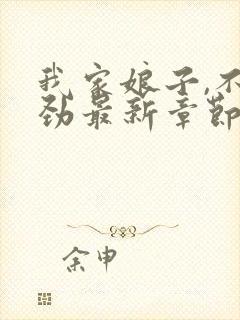 我家娘子,不
劲最新章节
余申